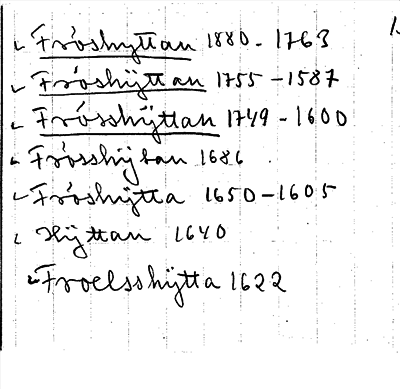 Fröshyttan 1880 - 1763
Fröshÿttan 1755 - 1587
Frösshÿttan 1749 - 1600
Frösshÿtan 1686
Fröshÿtta 1650 - 1605
Hÿttan 1640
Froelsshÿtta 1622